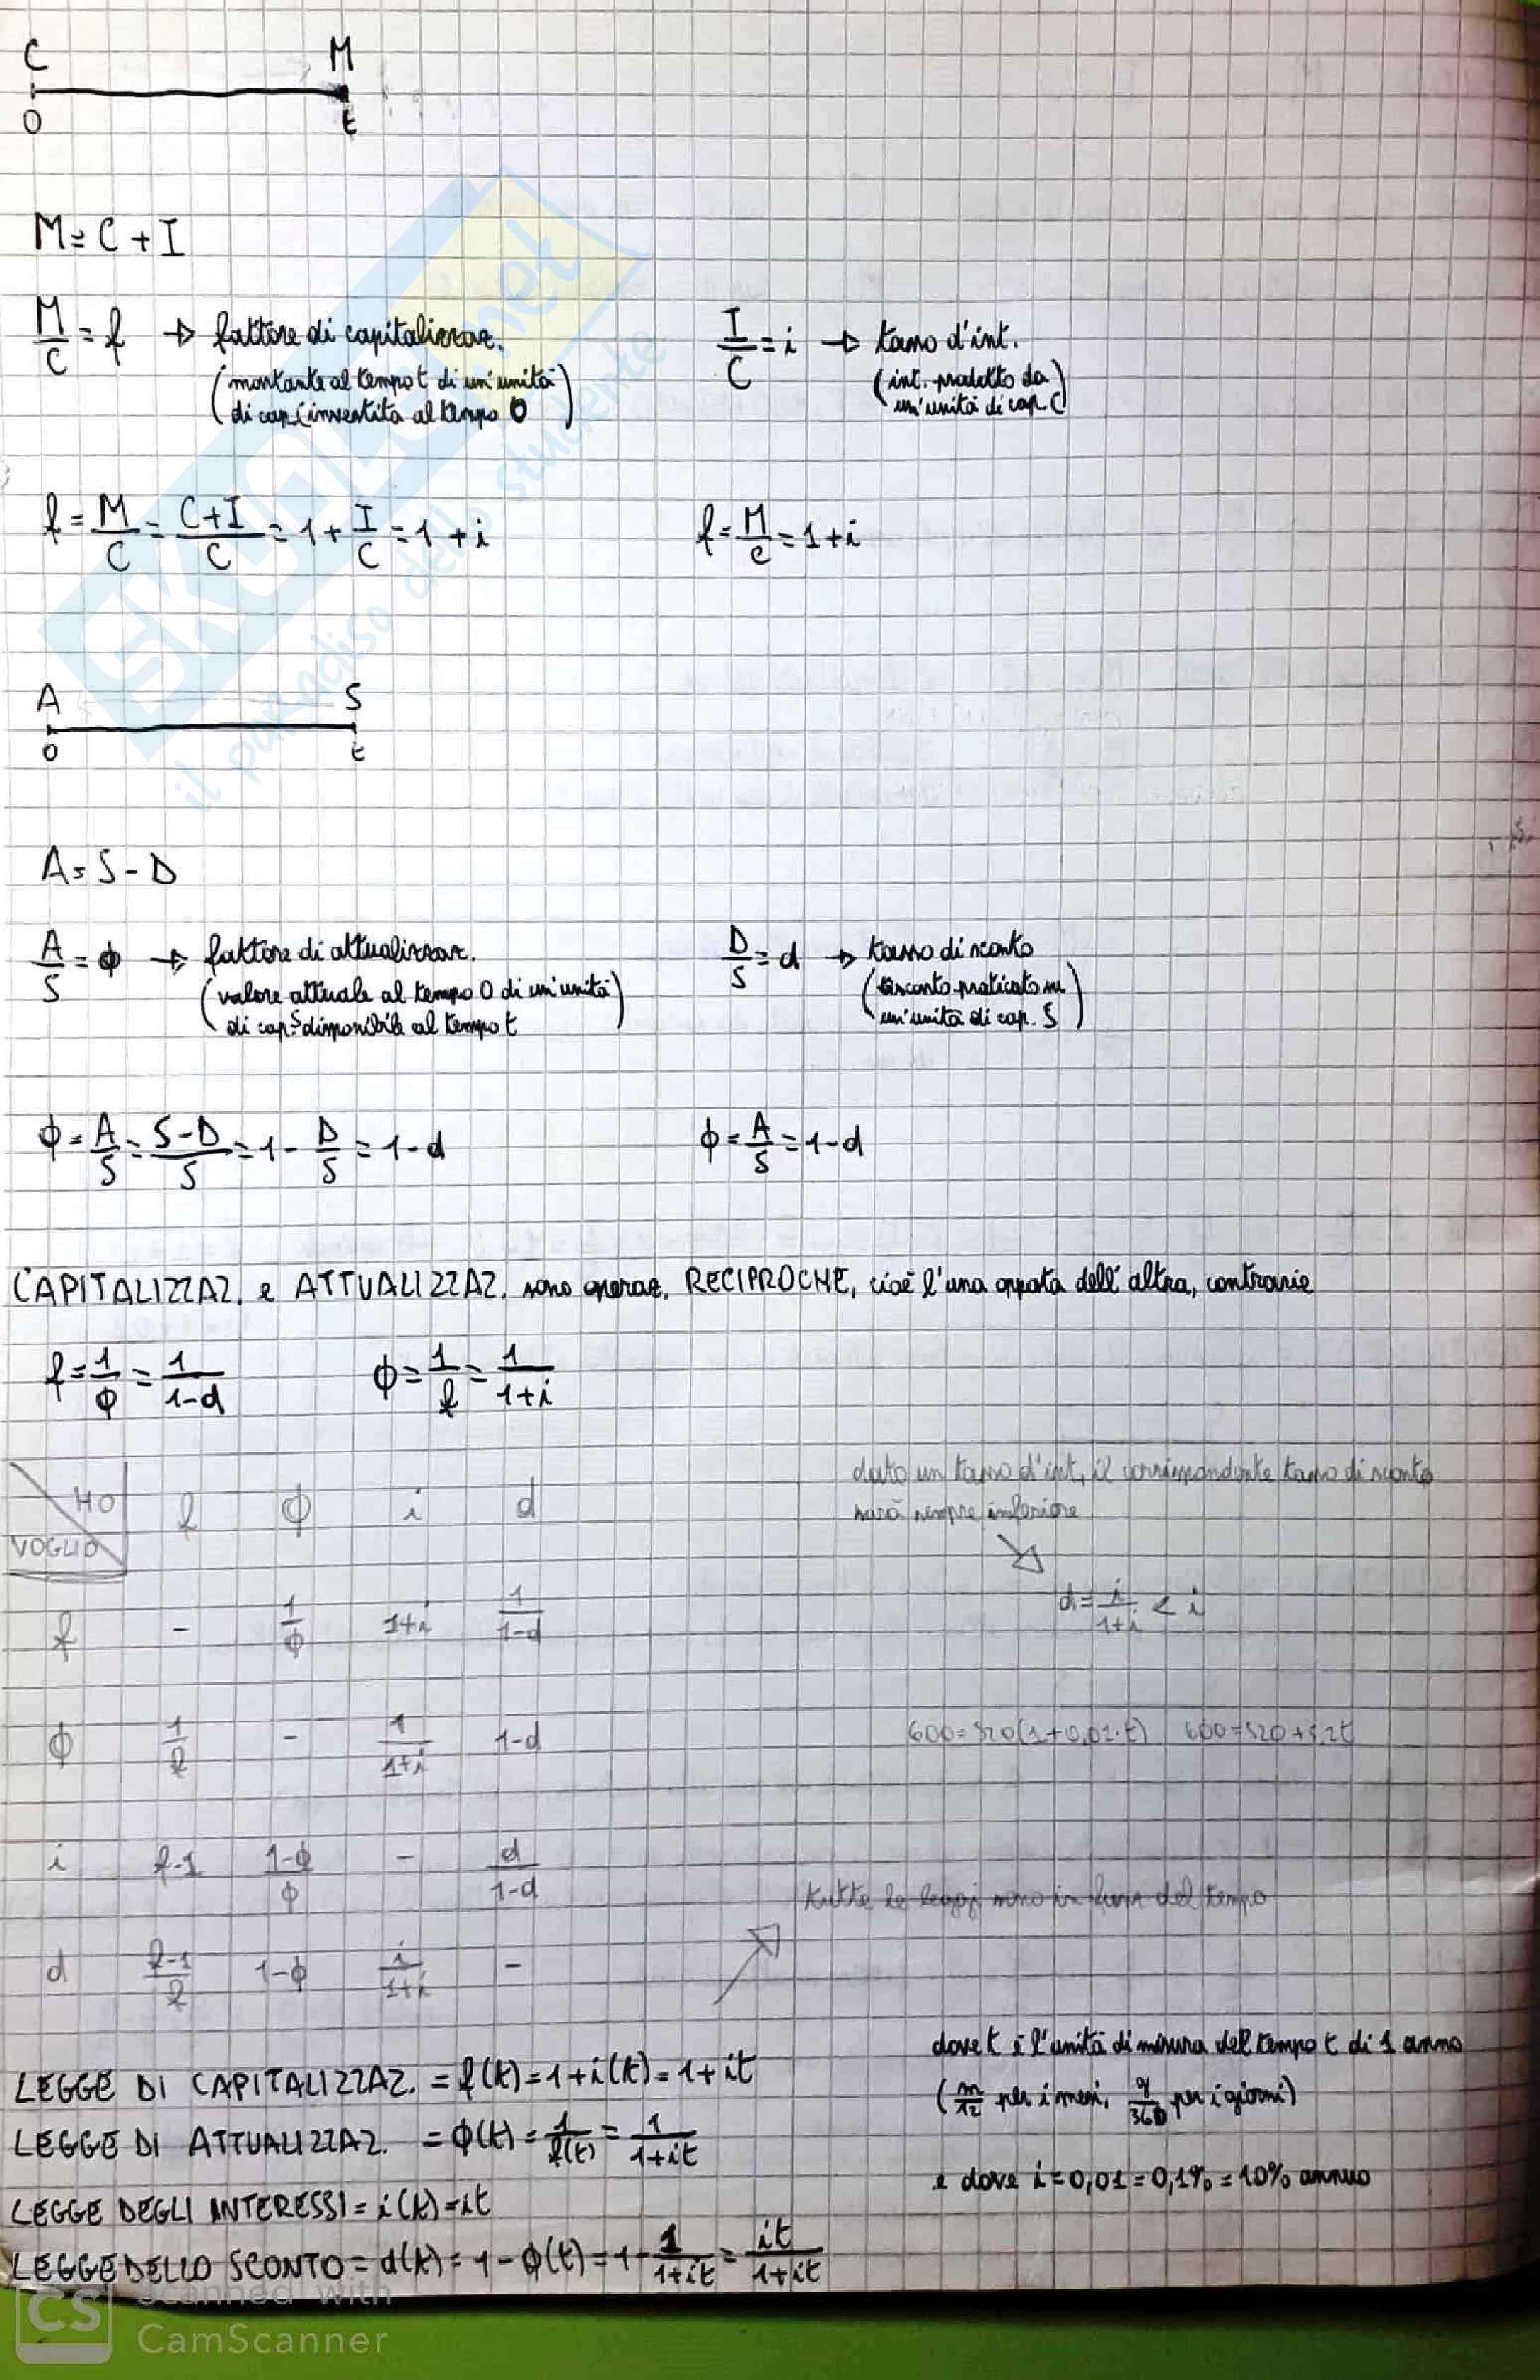 C M
0 t
M = C + I
M/C = f → fattore di capitalizzaz. (montante al tempo t di un'unità di cap. C investita al tempo 0)
I/C = i → tasso d'int. (int. prodotto da un'unità di cap. C)
f = M/C = (C+I)/C = 1 + I/C = 1 + i
f = M/C = 1 + i
A S
0 t
A = S - D
A/S = ϕ → fattore di attualizzaz. (valore attuale al tempo 0 di un'unità di cap. S disponibile al tempo t)
D/S = d → tasso di sconto (sconto praticato su un'unità di cap. S)
ϕ = A/S = (S-D)/S = 1 - D/S = 1 - d
ϕ = A/S = 1 - d
CAPITALIZZAZ. e ATTUALIZZAZ. sono operaz. RECIPROCHE, cioè l'una opposta dell'altra, contrarie
f = 1/ϕ = 1/(1-d)
ϕ = 1/f = 1/(1+i)
dato un tasso d'int, il corrispondente tasso di sconto
sarà sempre inferiore
d = i/(1+i) < i
HO
VOGLIO
f ϕ i d
f - 1/ϕ 1+i 1/(1-d)
ϕ 1/f - 1/(1+i) 1-d
600=520(1+0,01·t) 600=520+5,2t
i f-1 (1-ϕ)/ϕ - d/(1-d)
d (f-1)/f 1-ϕ i/(1+i) -
tutte le leggi sono in funz del tempo
LEGGE DI CAPITALIZZAZ. = f(t) = 1 + i(t) = 1 + it
LEGGE DI ATTUALIZZAZ. = ϕ(t) = 1/f(t) = 1/(1+it)
LEGGE DEGLI INTERESSI = i(t) = it
LEGGE DELLO SCONTO = d(t) = 1 - ϕ(t) = 1 - 1/(1+it) = it/(1+it)
dove t è l'unità di misura del tempo t di 1 anno
(m/12 per i mesi, g/360 per i giorni)
e dove i = 0,01 = 0,1% = 10% annuo
SKUOLA.net
il paradiso dello studente
CS
Scanned with
CamScanner